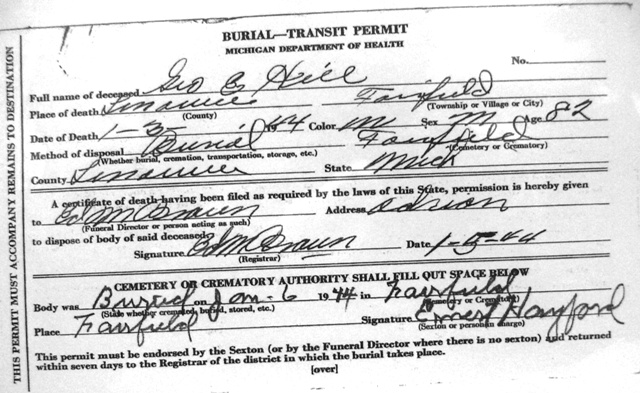 BURIAL—TRANSIT PERMIT
MICHIGAN DEPARTMENT OF HEALTH
No.
Full name of deceased Geo E Hill
Place of death Lenawee Fairfield
(County) (Township or Village or City)
Date of Death 1-3- 1944 Color Sex M Age 82
Method of disposal Burial Fairfield
(Whether burial, cremation, transportation, storage, etc.) (Cemetery or Crematory)
County Lenawee State Mich
A certificate of death having been filed as required by the laws of this State, permission is hereby given
to Ed Address Adrian
(Funeral Director or person acting as such)
to dispose of body of said deceased.
Signature Ed Date 1-5-44
(Registrar)
CEMETERY OR CREMATORY AUTHORITY SHALL FILL OUT SPACE BELOW
Body was Buried on Jan-6 1944 in Fairfield
(State whether cremated, buried, stored, etc.) (Cemetery or Crematory)
Place Fairfield Signature Ernest Hayford
(Sexton or person in charge)
This permit must be endorsed by the Sexton (or by the Funeral Director where there is no sexton) and returned
within seven days to the Registrar of the district in which the burial takes place.
[over]
THIS PERMIT MUST ACCOMPANY REMAINS TO DESTINATION